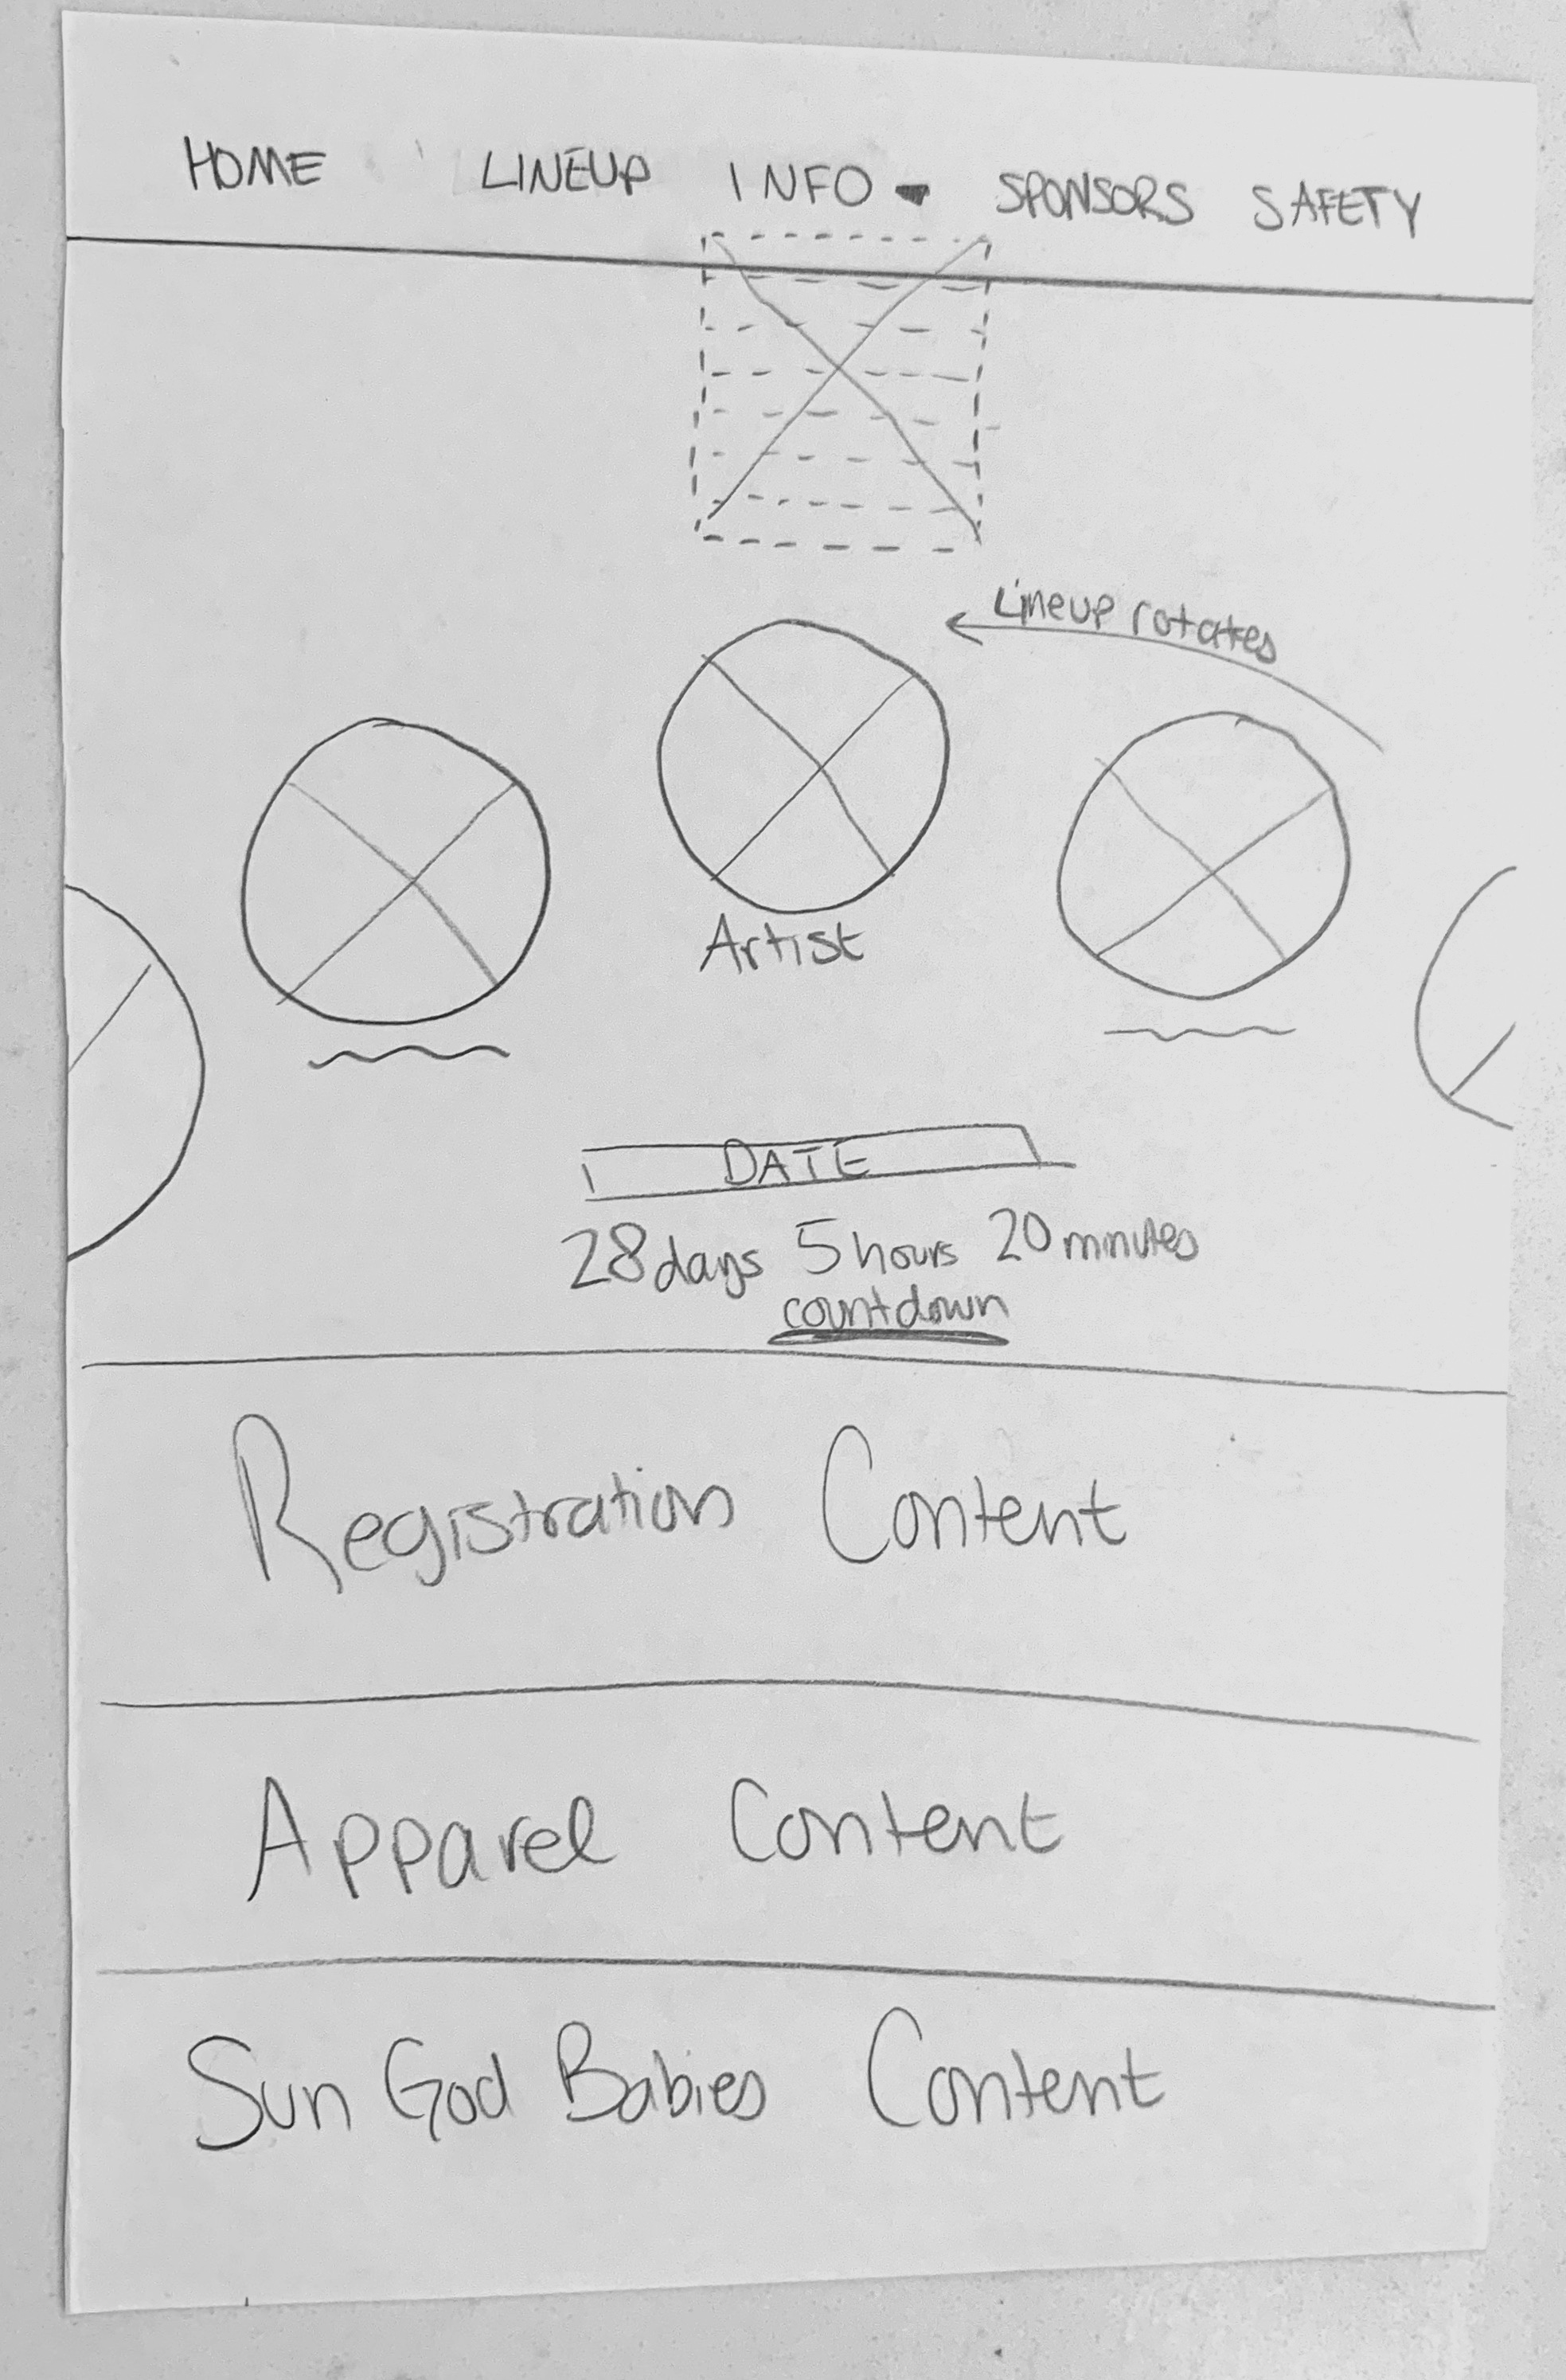 HOME LINEUP INFO SPONSORS SAFETY
Lineup rotates
Artist
DATE
28 days 5 hours 20 minutes
countdown
Registration Content
Apparel Content
Sun God Babies Content